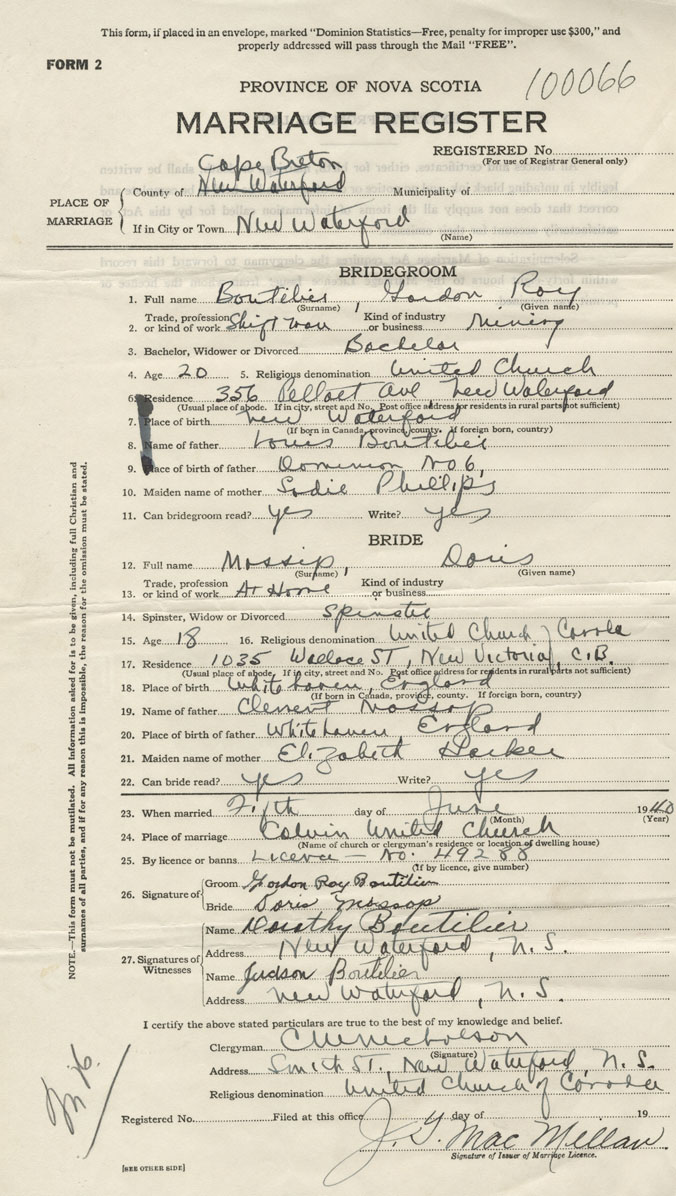 This form, if placed in an envelope, marked "Dominion Statistics—Free, penalty for improper use $300," and
properly addressed will pass through the Mail "FREE".
FORM 2
PROVINCE OF NOVA SCOTIA
100066
MARRIAGE REGISTER
REGISTERED No.
(For use of Registrar General only)
Cape Breton
PLACE OF MARRIAGE
County of New Waterford Municipality of
If in City or Town New Waterford
(Name)
BRIDEGROOM
1. Full name Boutilier, Gordon Roy
(Surname) (Given name)
2. Trade, profession or kind of work Shift man Kind of industry or business Mining
3. Bachelor, Widower or Divorced Bachelor
4. Age 20 5. Religious denomination United Church
6. Residence 356 Ave, New Waterford
(Usual place of abode. If in city, street and No. Post office address for residents in rural parts not sufficient)
7. Place of birth New Waterford
(If born in Canada, province, county. If foreign born, country)
8. Name of father Louis Boutilier
9. Place of birth of father Dominion No 6,
10. Maiden name of mother Sadie Phillips
11. Can bridegroom read? yes Write? yes
BRIDE
12. Full name Mossip, Doris
(Surname) (Given name)
13. Trade, profession or kind of work At Home Kind of industry or business
14. Spinster, Widow or Divorced Spinster
15. Age 18 16. Religious denomination United Church of Canada
17. Residence 1035 Wallace ST, New Victoria, C.B.
(Usual place of abode. If in city, street and No. Post office address for residents in rural parts not sufficient)
18. Place of birth Whitehaven, England
(If born in Canada, province, county. If foreign born, country)
19. Name of father Clement Mossop
20. Place of birth of father Whitehaven, England
21. Maiden name of mother Elizabeth
22. Can bride read? yes Write? yes
23. When married Fifth day of June 1940
(Month) (Year)
24. Place of marriage Calvin United Church
(Name of church or clergyman's residence or location of dwelling house)
25. By licence or banns Licence – No. 49288
(If by licence, give number)
26. Signature of
Groom Gordon Roy Boutilier
Bride Doris Mossop
27. Signatures of Witnesses
Name Dorothy Boutilier
Address New Waterford, N.S.
Name Judson Boutilier
Address New Waterford, N.S.
I certify the above stated particulars are true to the best of my knowledge and belief.
Clergyman C M Nicholson
(Signature)
Address Smith ST., New Waterford, N.S.
Religious denomination United Church of Canada
Registered No. Filed at this office day of 19
J. G. Mac Millan.
Signature of Issuer of Marriage Licence.
[SEE OTHER SIDE]
NOTE.—This form must not be mutilated. All information asked for is to be given, including full Christian and
surnames of all parties, and if for any reason this is impossible, the reason for the omission must be stated.